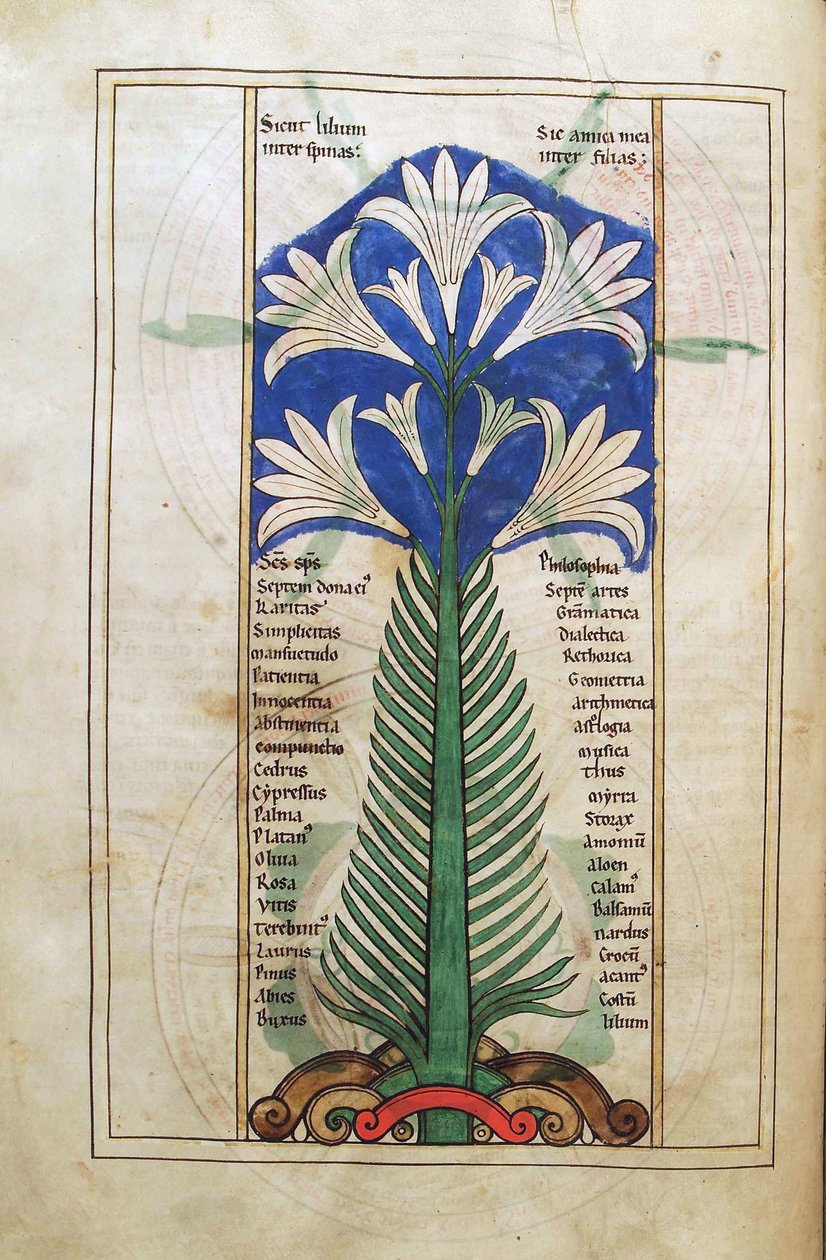 Sicut lilium
inter spinas:
Sic amica mea
inter filias:
Scs sps
Septem dona eiꝰ
Karitas
Simplicitas
mansuetudo
Patientia
Innocentia
Abstinentia
compunctio
Cedrus
Cypressus
Palma
Platanꝰ
Oliua
Rosa
Vitis
Terebintꝰ
Laurus
Pinus
Abies
Buxus
Philosophia
Septē artes
Grāmatica
Dialectica
Rethorica
Geometria
arithmetica
astͦlogia
musica
thus
myrra
Storax
Amomū
Aloen
Calamꝰ
Balsamū
nardus
Crocū
Acantꝰ
Costū
lilium